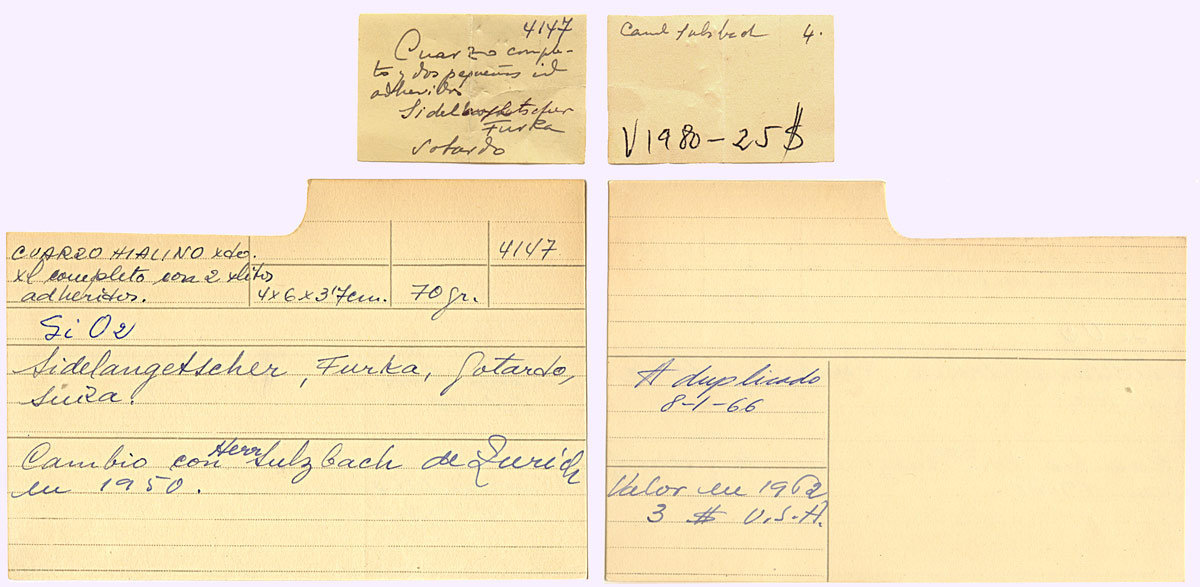 4147
Cuarzo comple-
to y dos pequeños id
adheridos
Furka
Gotardo
4.
V 1980 - 25 $
CUARZO HIALINO xdo.
4147
xl completo con 2 xlitos
adheridos.
4x6x3'7cm.
70gr.
Si O2
Sidelangetscher, Furka, Gotardo,
Suiza.
Cambio con Herr Sulzbach de Zurich
en 1950.
A duplicado
8-1-66
Valor en 1962
3 $ U.S.A.